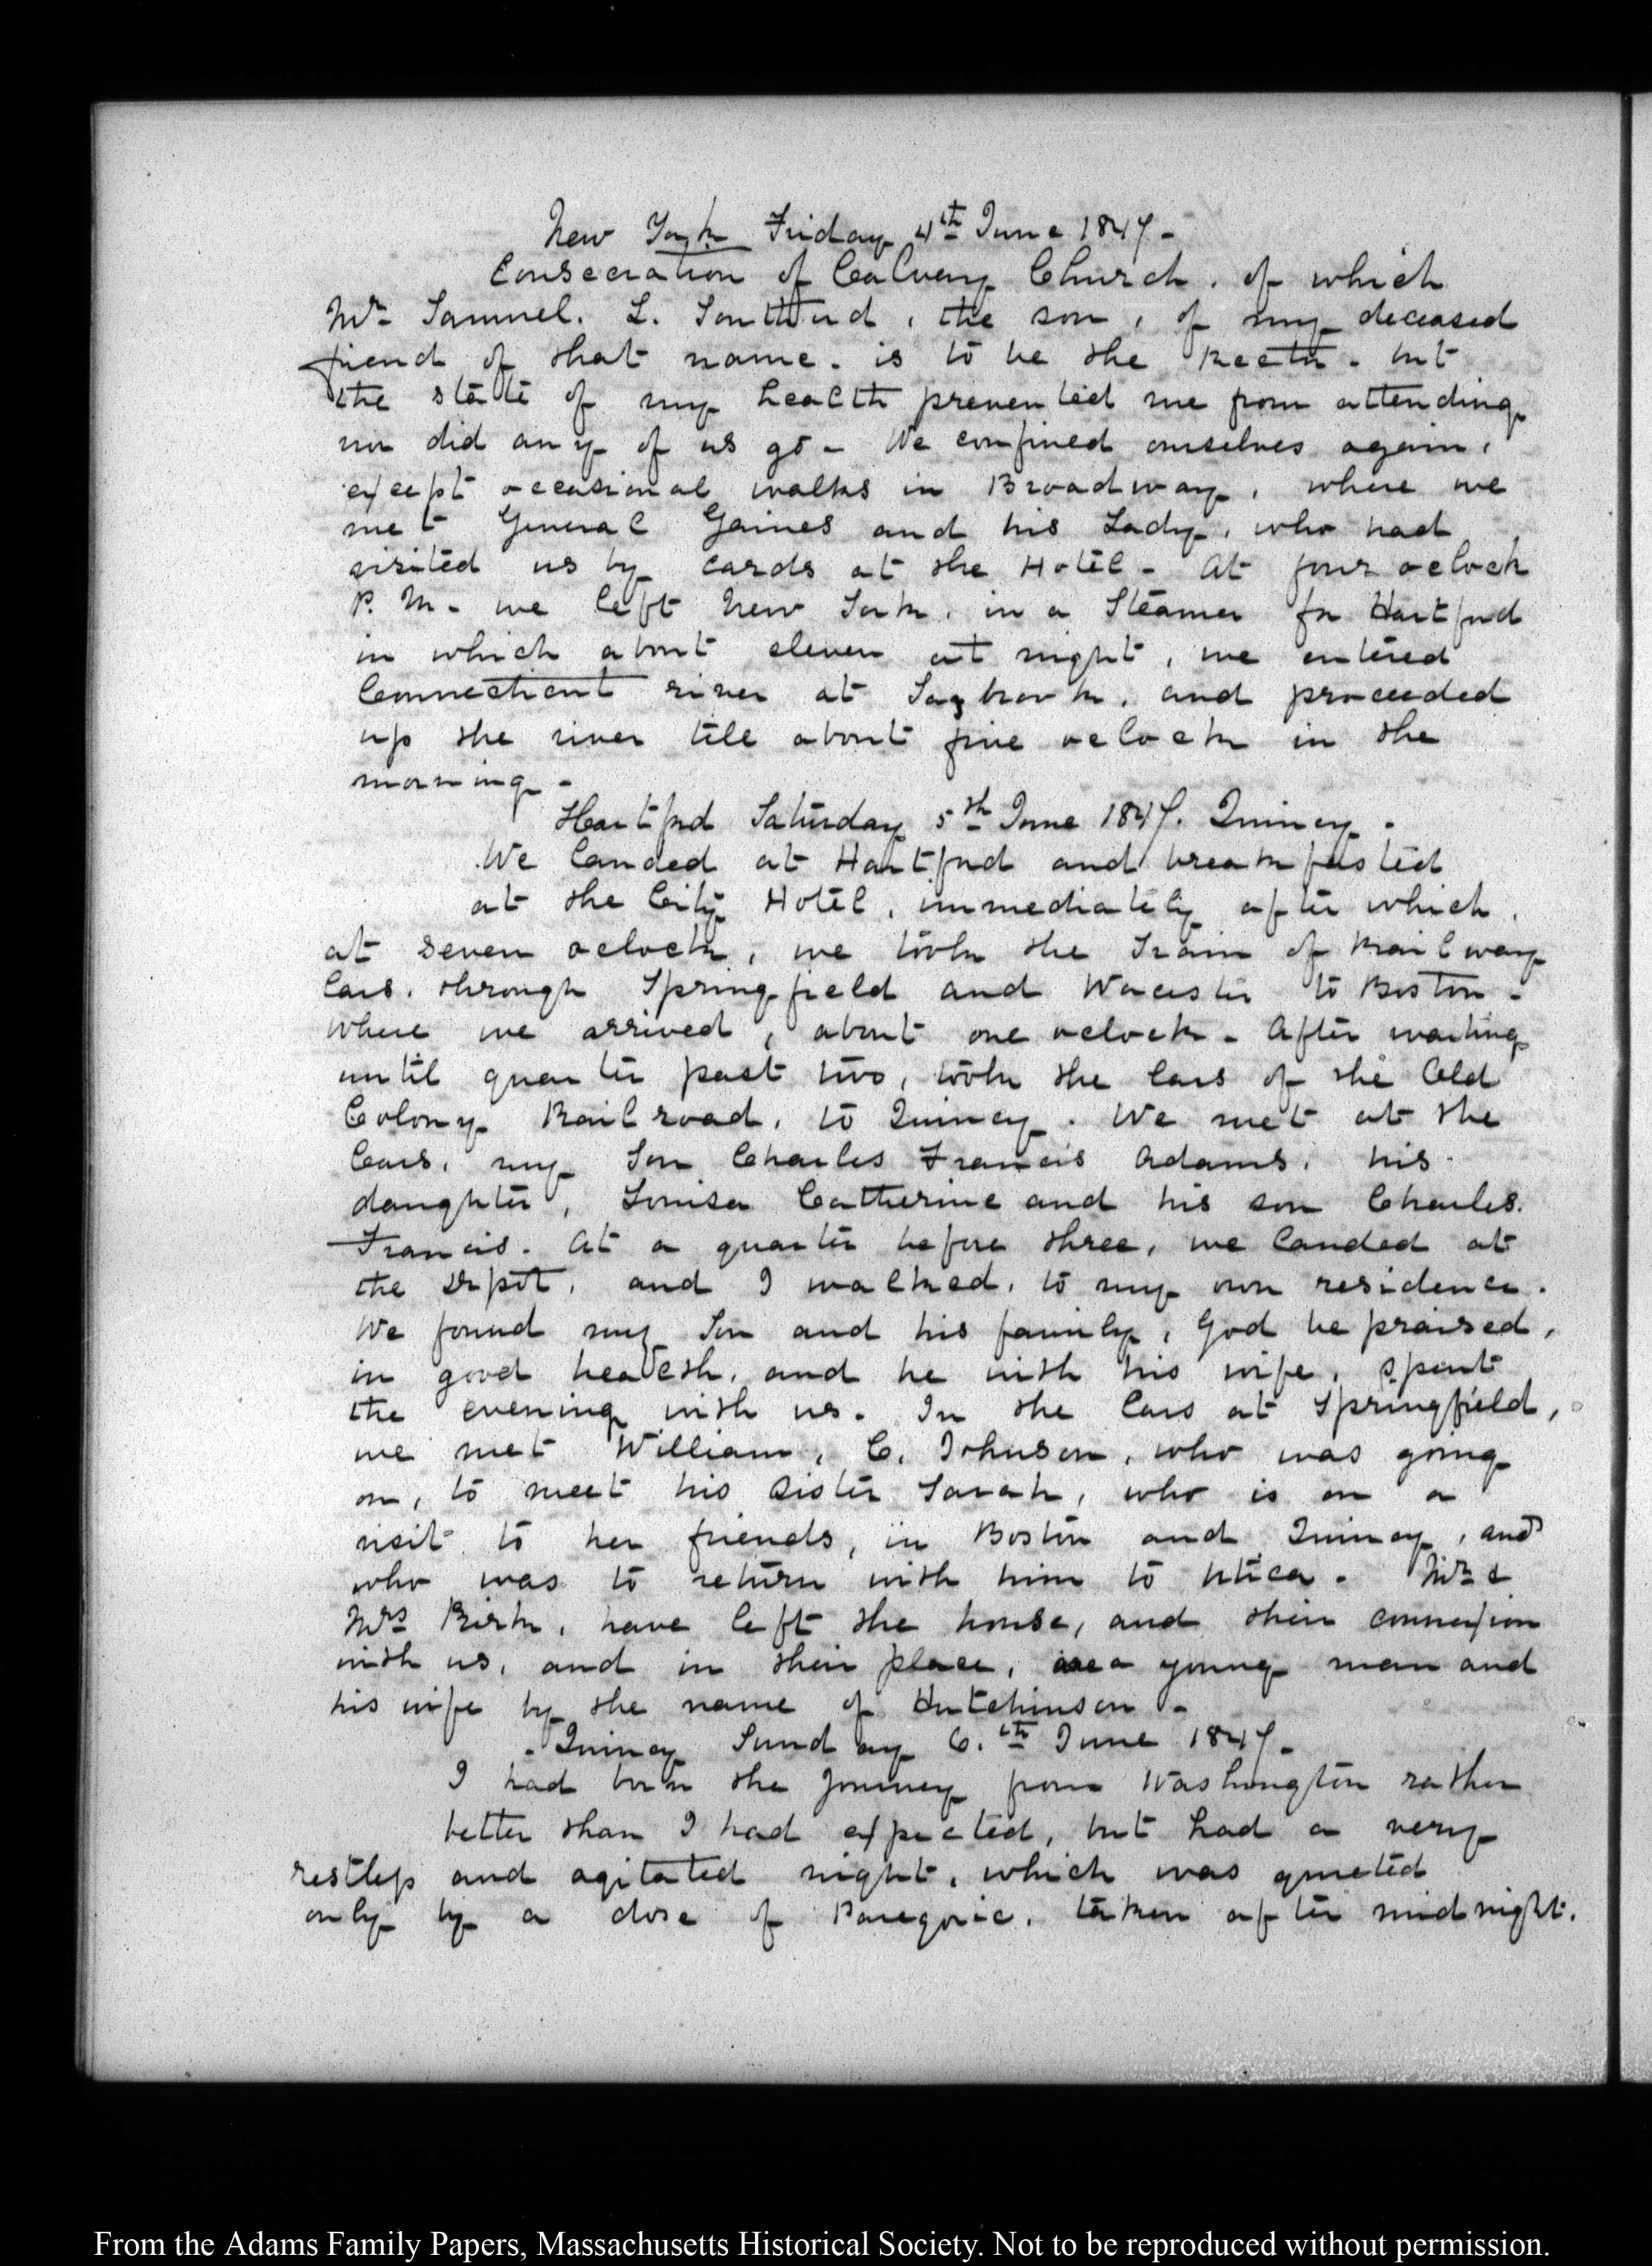 New York Friday 4th June 1847 -
Consecration of Calvary Church, of which
Mr Samuel. L. Southard, the son, of my deceased
friend of that name. is to be the Rector. but
the state of my health prevented me from attending
nor did any of us go - We confined ourselves again,
except occasional walks in Broadway, where we
met General Gaines and his Lady, who had
visited us by cards at the Hotel - At four oclock
P. M. we left New York, in a Steamer for Hartford
in which about eleven at night, we entered
Connecticut river at Saybrook, and proceeded
up the river till about five oclock in the
morning -
Hartford Saturday 5th June 1847. Quincy -
We landed at Hartford and breakfasted
at the City Hotel, immediately after which,
at seven oclock, we took the Train of Railway
Cars. through Springfield and Worcester to Boston -
where we arrived, about one oclock - After waiting
until quarter past two, took the Cars of the Old
Colony Railroad, to Quincy. We met at the
Cars, my Son Charles Francis Adams, his
daughter, Louisa Catherine and his son Charles.
Francis. At a quarter before three, we landed at
the Depot, and I walked, to my own residence.
We found my Son and his family, God be praised,
in good health, and he with his wife, spent
the evening with us. In the Cars at Springfield,
we met William, C. Johnson, who was going
on, to meet his Sister Sarah, who is on a
visit to her friends, in Boston and Quincy, and
who was to return with him to Utica. Mr &
Mrs Kirk, have left the house, and their connexion
with us, and in their place, are a young man and
his wife by the name of Hutchinson -
- Quincy Sunday 6.th June 1847 -
I had born the Journey from Washington rather
better than I had expected, but had a very
restless and agitated night, which was quieted
only by a dose of Paregoric, taken after midnight.
From the Adams Family Papers, Massachusetts Historical Society. Not to be reproduced without permission.